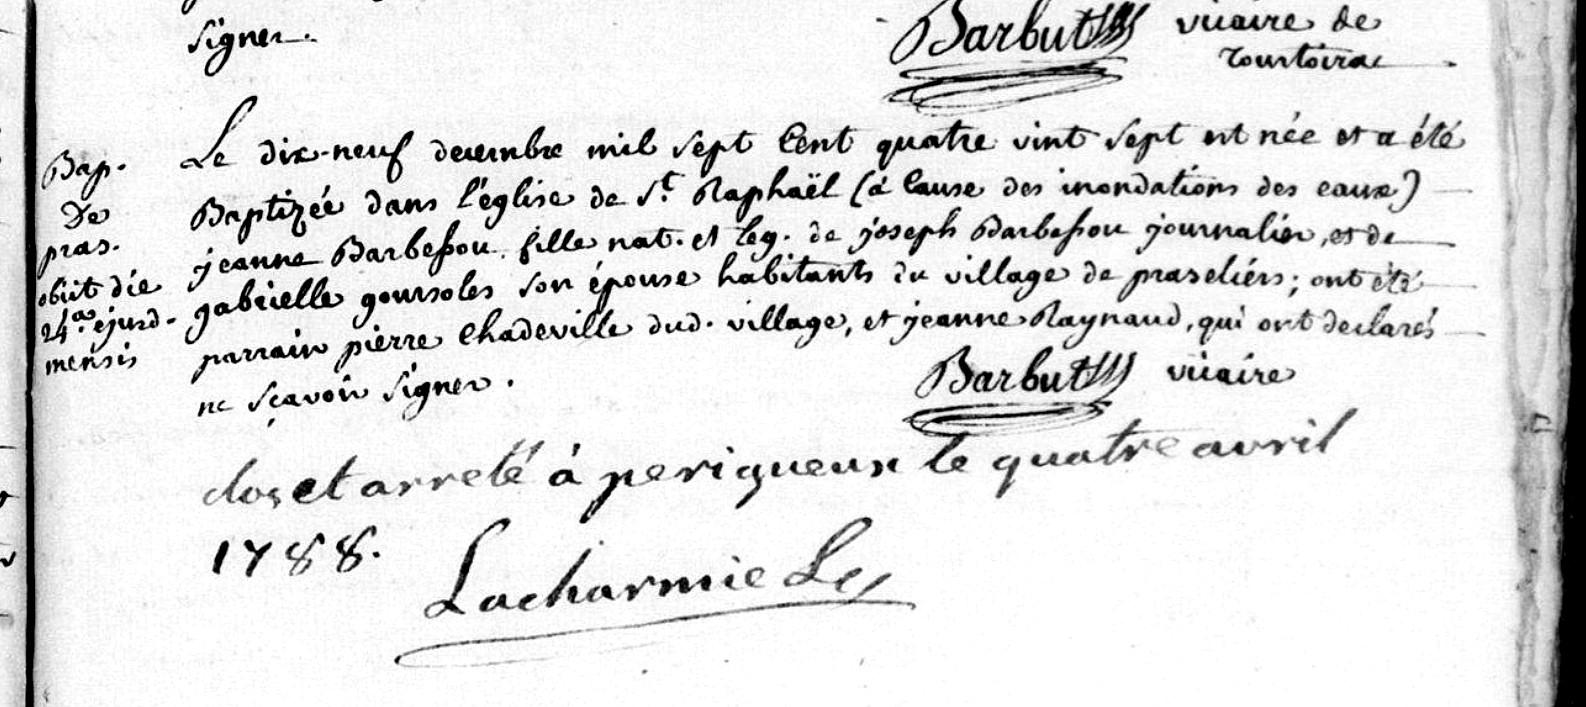 signer.
Barbut vicaire de
Tourtoirac
Bap.
De
pras.
obiit die
24a. ejusd.
mensis
Le dix-neuf decembre mil sept Cent quatre vint sept est née et a été
Baptizée dans l'église de St. Raphaël (à Cause des inondations des eaux)
jeanne Barbessou fille nat. et leg. de joseph Barbessou journalier, et de
gabrielle goursoles son épouse habitants du village de praseliers; ont été
parrain pierre Chadeville dud. village, et jeanne Raynaud, qui ont declarés
ne sçavoir signer.
Barbut vicaire
clos et arreté à perigueux le quatre avril
1788.
Lacharmie